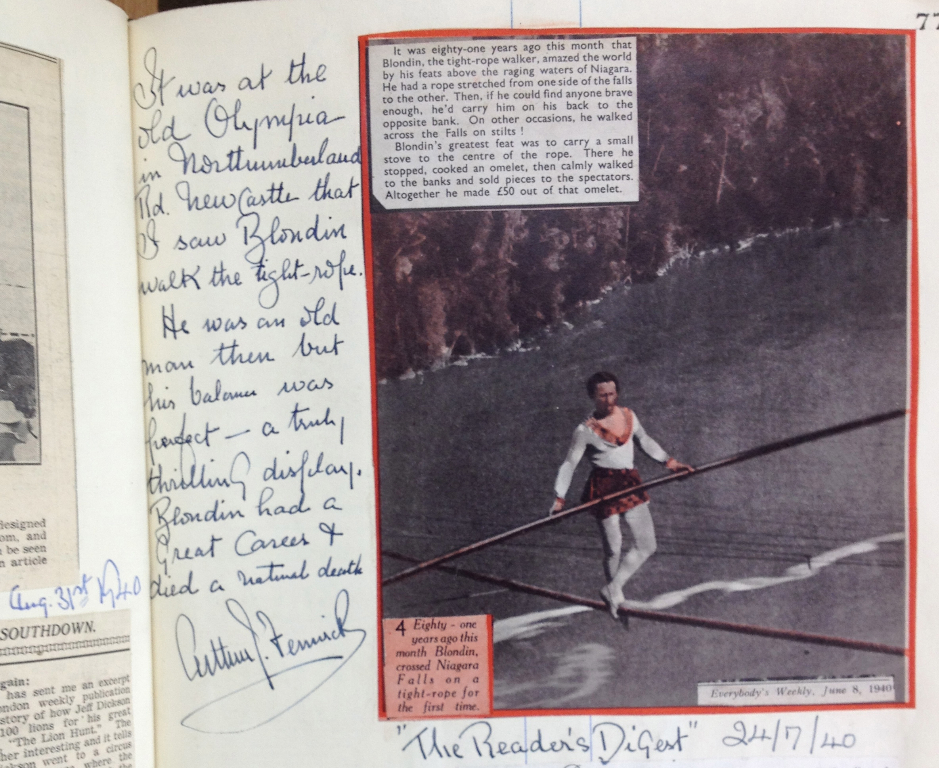 77
designed
om, and
be seen
n article
Aug. 31st 1940
SOUTHDOWN.
gain:
has sent me an excerpt
ndon weekly publication
story of how Jeff Dickson
100 lions for his great
"The Lion Hunt." The
her interesting and it tells
ckson went to a circus
where the
It was at the
old Olympia
in Northumberland
Rd. Newcastle that
I saw Blondin
walk the tight-rope.
He was an old
man then but
his balance was
perfect — a truly
thrilling display.
Blondin had a
Great Career &
died a natural death
Arthur J. Fenwick
It was eighty-one years ago this month that
Blondin, the tight-rope walker, amazed the world
by his feats above the raging waters of Niagara.
He had a rope stretched from one side of the falls
to the other. Then, if he could find anyone brave
enough, he'd carry him on his back to the
opposite bank. On other occasions, he walked
across the Falls on stilts !
Blondin's greatest feat was to carry a small
stove to the centre of the rope. There he
stopped, cooked an omelet, then calmly walked
to the banks and sold pieces to the spectators.
Altogether he made £50 out of that omelet.
4 Eighty - one
years ago this
month Blondin,
crossed Niagara
Falls on a
tight-rope for
the first time.
Everybody's Weekly, June 8, 1940
"The Reader's Digest" 24/7/40